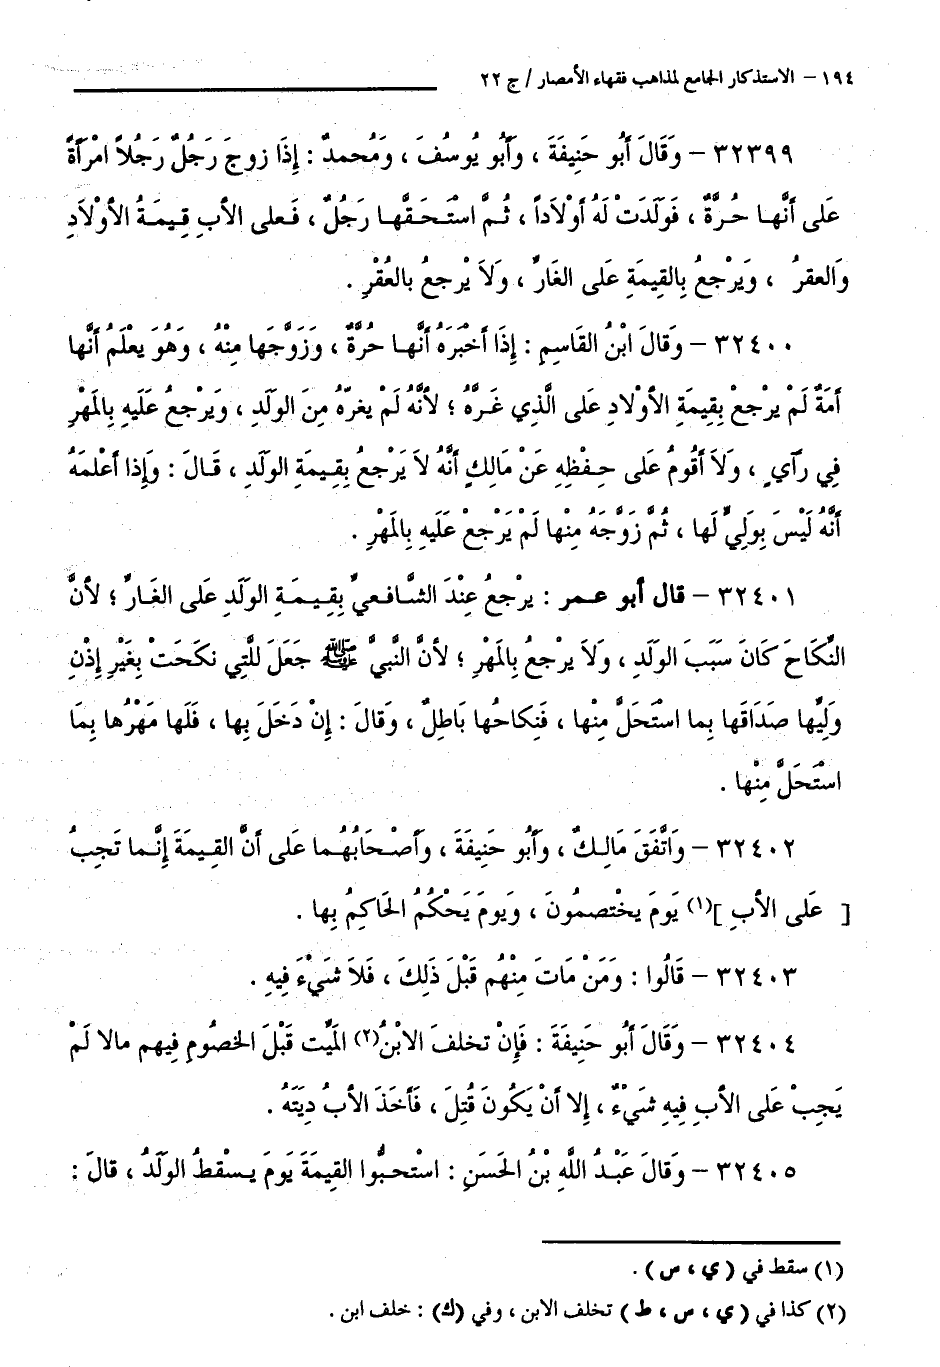 ١٩٤ – الاستذكار الجامع لمذاهب فقهاء الأمصار / ج ٢٢
٣٢٣٩٩ – وَقَالَ أَبُو حَنِيفَةَ ، وَأَبُو يُوسُفَ ، وَمُحمدٌ : إِذَا زوجَ رَجُلٌ رَجُلاً امْرَأَةً
عَلى أَنَّها حُرَّةٌ ، فَوَلَدَتْ لَهُ أَوْلاَداً ، ثُمَّ اسْتَحَقَّها رَجُلٌ ، فَعلى الأَبِ قِيمَةُ الأَوْلاَدِ
وَالعقرُ ، وَيَرْجعُ بِالقِيمَةِ عَلى الغَارِّ ، وَلاَ يْرجعُ بالعُقْرِ .
٣٢٤٠٠ – وَقَالَ ابْنُ القَاسِمِ : إِذَا أَخْبَرَهُ أَنَّهَا حُرَّةٌ ، وَزَوَّجَها مِنْهُ ، وَهُوَ يعْلَمُ أَنَّها
أَمَةٌ لَمْ يرْجعْ بِقِيمَةِ الأَوْلادِ عَلى الَّذِي غَرَّهُ ؛ لأَنَّهُ لَمْ يغرّهُ مِنَ الوَلَدِ ، وَيرْجعُ عَلَيهِ بِالمَهْرِ
فِي رَآي ، وَلاَ أَقُومُ عَلى حِفْظِهِ عَنْ مَالِكٍ أَنَّهُ لاَ يَرْجعُ بِقِيمَةِ الوَلَدِ ، قَالَ : وَإِذا أَعْلمَهُ
أَنَّهُ لَيْسَ بِوَلِيٍّ لَها ، ثُمَّ زَوَّجَهُ مِنْها لَمْ يَرْجعْ عَلَيهِ بِالمَهْرِ .
٣٢٤٠١ – قال أبو عمر : يرْجعُ عِنْدَ الشَّافعيِّ بِقِيمَةِ الوَلَدِ عَلى الغَارِّ ؛ لأَنَّ
النِّكَاحَ كَانَ سَبَبَ الوَلَدِ ، وَلاَ يرْجعُ بِالمَهْرِ ؛ لأَنَّ النَّبيَّ ﷺ جَعَلَ للَّتِي نكَحَتْ بِغَيْرِ إِذْنِ
وَلِيِّها صَدَاقَها بِما اسْتَحَلَّ مِنْها ، فَنِكاحُها بَاطِلٌ ، وَقالَ : إِنْ دَخَلَ بِها ، فَلَها مَهْرُها بِمَا
اسْتَحَلَّ مِنْها .
٣٢٤٠٢ – وَاتَّفَقَ مَالِكٌ ، وَأَبُو حَنِيفَةَ ، وَأَصْحَابُهُما عَلى أَنَّ القِيمَةَ إِنَّما تَجِبُ
[ عَلى الأَبِ ](١) يَومَ يخْتصمُونَ ، وَيومَ يَحْكُمُ الحَاكِمُ بِها .
٣٢٤٠٣ – قَالُوا : وَمَنْ مَاتَ مِنْهُم قَبْلَ ذَلِكَ ، فَلاَ شَيْءَ فِيهِ .
٣٢٤٠٤ – وَقَالَ أَبُو حَنِيفَةَ : فَإِنْ تخلفَ الابْنُ(٢) المَيِّت قَبْلَ الخصُومِ فِيهم مالا لَمْ
يَجِبْ عَلى الأَبِ فِيهِ شَيْءٌ ، إِلا أَنْ يَكُونَ قُتِلَ ، فَأَخَذَ الأَبُ دِيَتَهُ .
٣٢٤٠٥ – وَقَالَ عَبْدُ اللَّهِ بْنُ الحَسَنِ : اسْتحبُّوا القِيمَةَ يَومَ يسْقطُ الوَلَدُ ، قالَ :
(١) سقط في ( ي ، س ) .
(٢) كذا في ( ي ، س ، ط ) تخلف الابن ، وفي (ك) : خلف ابن .